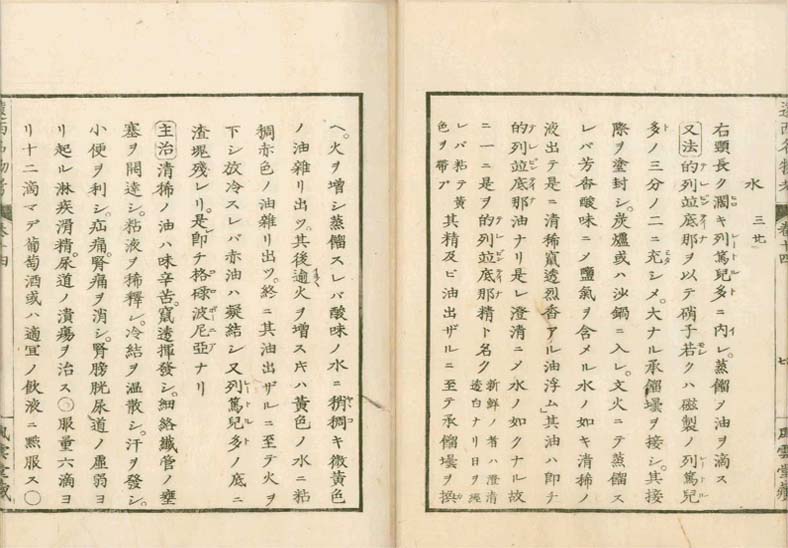 水 三廿
右頸長ク濶キ列篤兒多ニ内レ。蒸餾ノ油ヲ滴ス
又法 的列並底那ヲ以テ硝子若クハ磁製ノ列篤兒
多ノ三分ノ二ニ充シメ。大ナル承餾壜ヲ接シ。其接
際ヲ塗封シ。炭爐或ハ沙鍋ニ入レ。文火ニテ蒸餾ス
レバ芳香酸味ニノ鹽氣ヲ含メル水ノ如キ清稀ノ
液出テ是ニ清稀竄透烈香アル油浮ム。其油ハ即チ
的列並底那油ナリ是レ澄清ニメ水ノ如クナル故
ニ一ニ是ヲ的列並底那精ト名ク 新鮮ノ者ハ澄清透白ナリ日ヲ經
レバ粘テ黄色ヲ帶ブ 其精及ビ油出ザルニ至テ承餾壜ヲ換
ヘ。火ヲ增シ蒸餾スレバ酸味ノ水ニ稍稠キ微黄色
ノ油雜リ出ツ。其後逾火ヲ增ス片ハ黄色ノ水ニ粘
稠赤色ノ油雜リ出ツ。終ニ其油出ザルニ至テ火ヲ
下シ放冷スレバ赤油ハ凝結シ又列篤兒多ノ底ニ
渣塊殘レリ。是即チ格碌波尼亞ナリ
主治 清稀ノ油ハ味辛苦。竄透揮發シ。細絡纖管ノ壅
塞ヲ開達シ。粘液ヲ稀釋シ。冷結ヲ温散シ。汗ヲ發シ。
小便ヲ利シ。疝痛。腎痛ヲ消シ。腎膀胱尿道ノ虛弱ヨ
リ起ル淋疾滑精。尿道ノ潰瘍ヲ治ス○服量六滴ヨ
リ十二滴マデ葡萄酒或ハ適宜ノ飲液ニ點服ス○